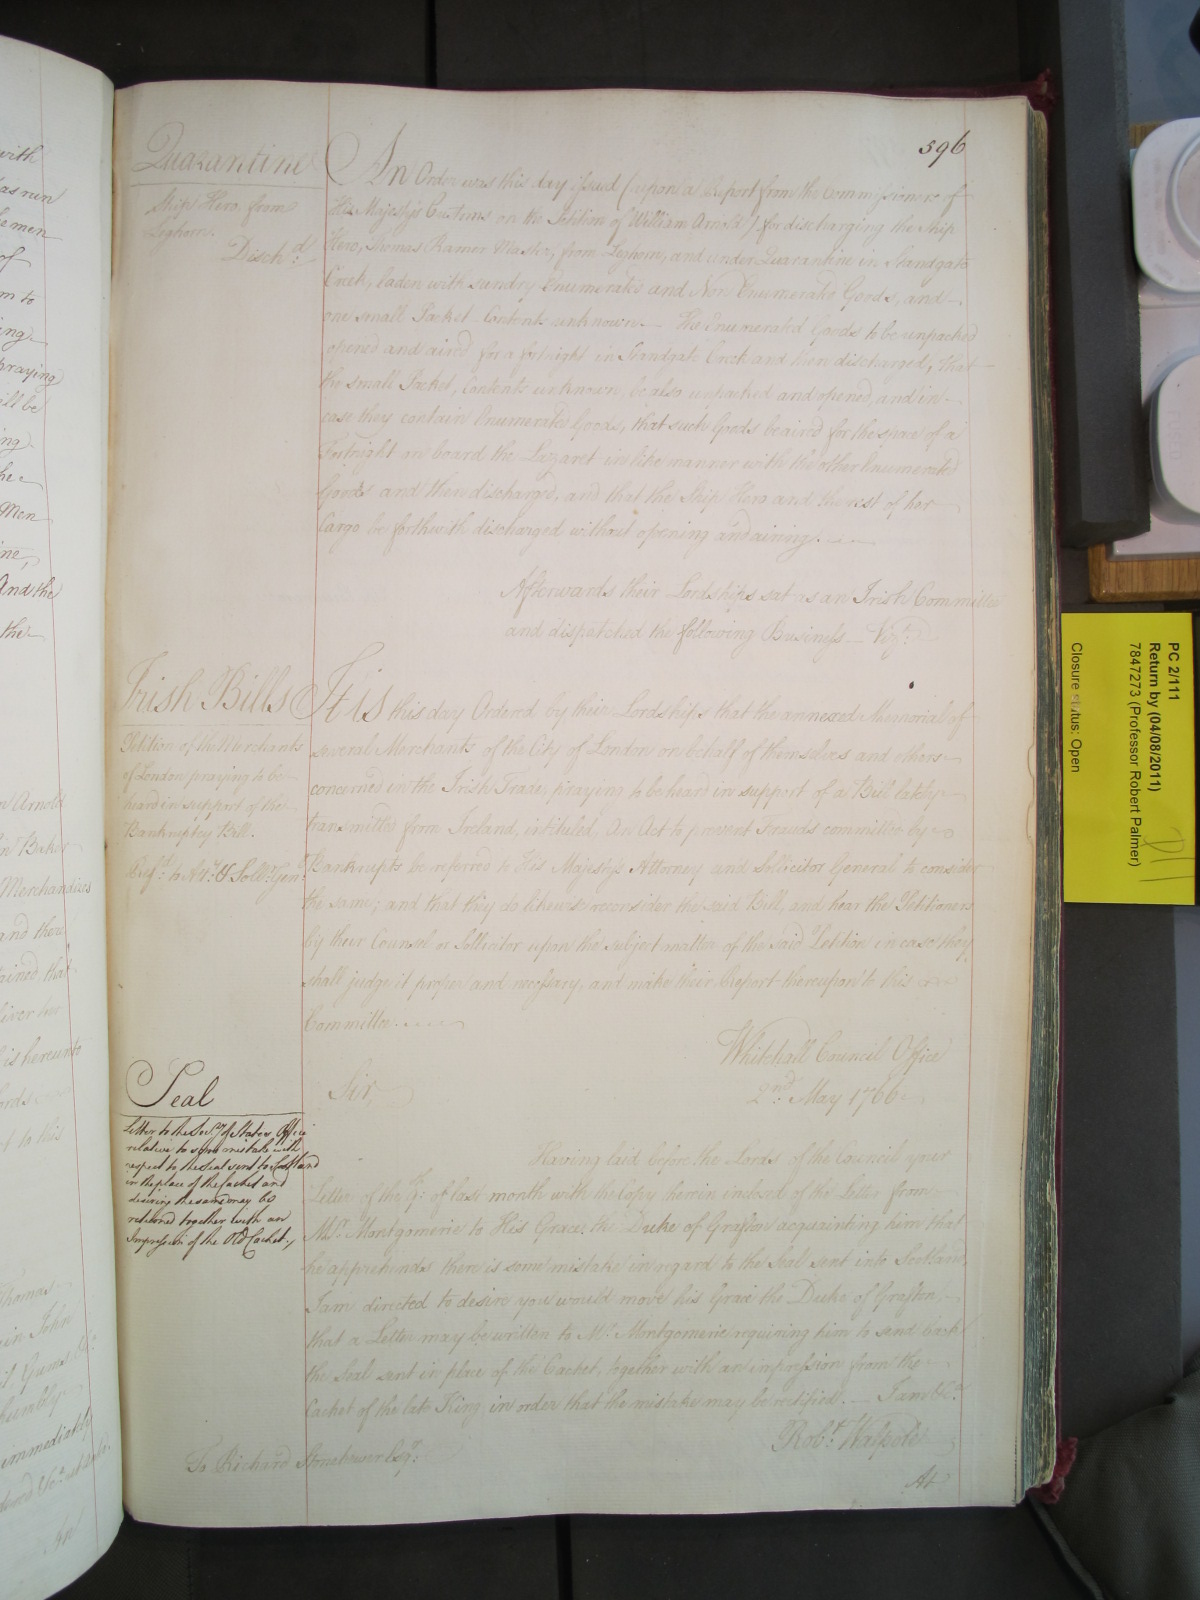 596
Quarantine
Ship Hero, from
Leghorn.
Disch.d
An Order was this day issued (upon a Report from the Commissioners of
His Majestys Customs on the Petition of William Arnold) for discharging the Ship
Hero, Thomas Kamer Master, from Leghorn, and under Quarantine in Standgate
Creek, laden with sundry Enumerated and Non Enumerated Goods, and
one small Packet Contents unknown. The Enumerated Goods to be unpacked
opened and aired for a fortnight in Standgate Creek and then discharged, that
the small Packet, Contents unknown be also unpacked and opened, and in
case they contain Enumerated Goods, that such Goods be aired for the space of a
Fortnight on board the Lazaret in like manner with the other Enumerated
Goods and then discharged, and that the Ship Hero and the rest of her
Cargo be forthwith discharged without opening and airing.
Afterwards their Lordships sat as an Irish Committee
and dispatched the following Business Vizt:
Irish Bills
Petition of the Merchants
of London praying to be
heard in support of the
Bankruptcy Bill.
Ref.d to At.y & Soll.r Gen.l
It is this day Ordered by their Lordships that the annexed Memorial of
several Merchants of the City of London on behalf of themselves and others
concerned in the Irish Trade, praying to be heard in support of a Bill lately
transmitted from Ireland, intituled, An Act to prevent Frauds committed by
Bankrupts be referred to His Majestys Attorney and Sollicitor General to consider
the same; and that they do likewise reconsider the said Bill, and hear the Petitioners
by their Counsel or Sollicitor upon the subject matter of the said Petition in case they
shall judge it proper and necessary, and make their Report thereupon to this
Committee.
Whitehall Council Office
2nd. May 1766
Seal
Letter to the Sec.ry of States Office
relative to some mistake with
respect to the Seal sent to Scotland
in the place of the Cachet and
desiring the same may be
returned together with an
Impression of the Old Cachet.
Sir,
Having laid before the Lords of the Council your
Letter of the of last month with the Copy herein inclosed of the Letter from
Mr. Montgomerie to His Grace the Duke of Grafton acquainting him that
he apprehends there is some mistake in regard to the Seal sent into Scotland,
I am directed to desire you would move his Grace the Duke of Grafton,
that a Letter may be written to Mr. Montgomerie requiring him to send back
the Seal sent in place of the Cachet, together with an impression from the
Cachet of the late King in order that the mistake may be rectified. I am &c.a
Robt. Walpole
To Richard Stonehewer Esqr.
At
PC 2/111
Return by (04/08/2011)
7847273 (Professor Robert Palmer)
Closure status: Open
D11